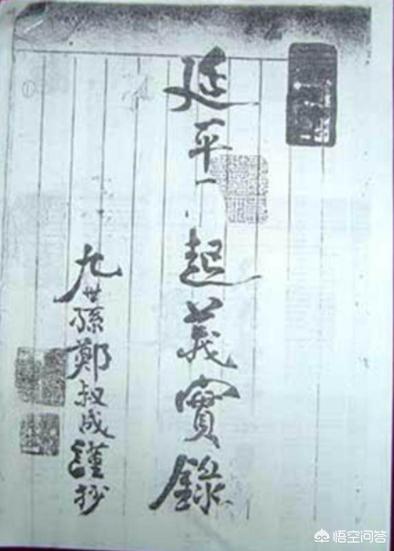 延平起義實錄
九世孫鄭叔成謹抄
悟空问答